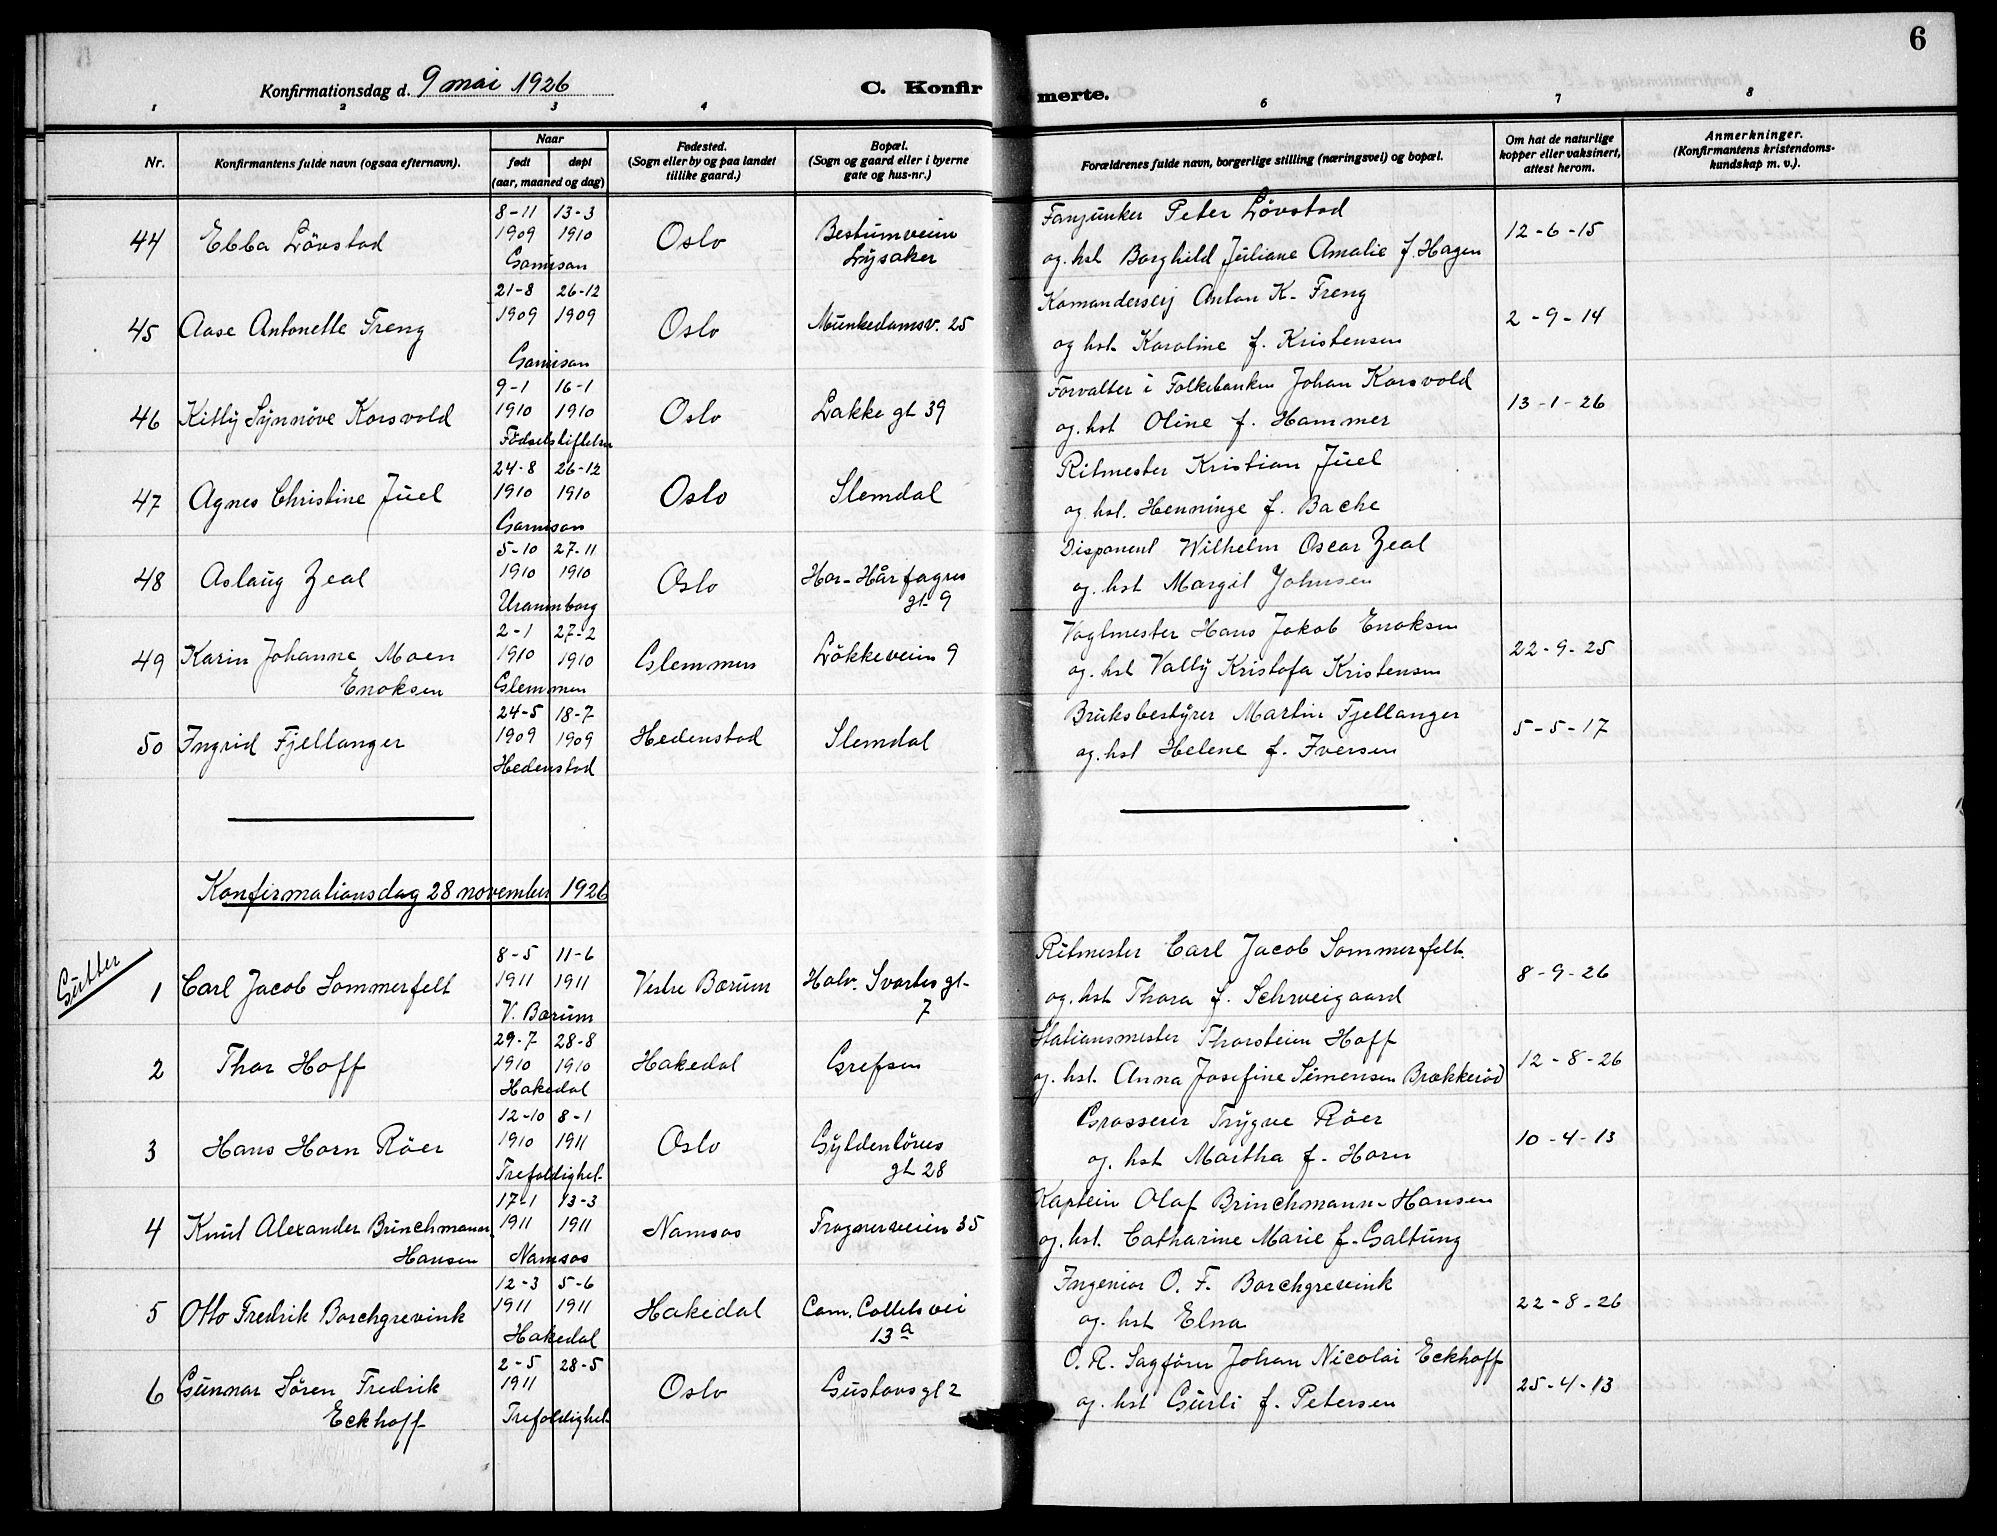 6
Konfirmationsdag d. 9 mai 1926
C. Konfirmerte.
1 2 3 4 5 6 7 8
Nr.
Konfirmantens fulde navn (ogsaa efternavn).
Naar
født
døpt
(aar, maaned og dag)
Fødested.
(Sogn eller by og paa landet
tillike gaard.)
Bopæl.
(Sogn og gaard eller i byerne
gate og hus-nr.)
Forældrenes fulde navn, borgerlige stilling (næringsvei) og bopæl.
Om hat de naturlige
kopper eller vaksinert,
attest herom.
Anmerkninger.
(Konfirmantens kristendoms-
kundskap m. v.).
44 Ebba Lövstad
8-11 1909
13-3 1910
Garnison
Oslo
Bestumveien
Lysaker
Fanjunker Peter Lövstad
og. hst Borghild Juliane Amalie f. Hagen
12-6-15
45 Aase Antonette Freng
21-8 1909
26-12 1909
Garnison
Oslo
Munkedamsv. 25
Komanderserj Anton K. Freng
og hst. Karoline f. Kristensen
2-9-14
46 Kitty Synnöve Korsvold
9-1 1910
16-1 1910
Födselstiftelsen
Oslo
Lakke gt 39
Forvalter i Folkebanken Johan Korsvold
og. hst Oline f. Hammer
13-1-26
47 Agnes Christine Juel
24-8 1910
26-12 1910
Garnison
Oslo
Slemdal
Ritmester Kristian Juel
og. hst. Henninge f. Bache
48 Aslaug Zeal
5-10 1910
27-11 1910
Uranienborg
Oslo
Har-Hårfagres
gt. 9
Disponent Wilhelm Oscar Zeal
og. hst Margit Johnsen
49 Karin Johanne Moen
Enoksen
2-1 1910
27-2 1910
Glemmen
Glemmen
Lökkeveien 9
Vogtmester Hans Jakob Enoksen
og. hst Vally Kristofa Kristensen
22-9-25
50 Ingrid Fjellanger
24-5 1909
18-7 1909
Hedenstad
Hedenstad
Slemdal
Bruksbestyrer Martin Fjellanger
og. hst Helene f. Iversen
5-5-17
Konfirmationsdag 28 november 1926
Gutter
1 Carl Jacob Sommerfelt
8-5 1911
11-6 1911
V. Bærum
Vestre Bærum
Halv. Svartes gt.
7
Ritmester Carl Jacob Sommerfelt.
og. hst Thora f. Schweigaard
8-9-26
2 Thor Hoff
29-7 1910
28-8 1910
Hakedal
Hakedal
Grefsen
Stationsmester Thorstein Hoff
og. hst. Anna Josefine Simensen Brækkeröd
12-8-26
3 Hans Horn Röer
12-10 1910
8-1 1911
Trefoldighet.
Oslo
Gyldenlöves
gt 28
Grosserer Trygve Röer
og. hst Martha f. Horn
10-4-13
4 Knut Alexander Brinchmann
Hansen
17-1 1911
13-3 1911
Namsos
Namsos
Frognerveien 35
Kaptein Olaf Brinchmann-Hansen
og. hst. Catharine Marie f. Galtung
5 Otto Fredrik Borchgrevink
12-3 1911
5-6 1911
Hakedal
Hakedal
Cam. Colletts vei
13 a
Ingeniør O. F. Borchgrevink
og. hst Elna
22-8-26
6 Gunnar Sören Fredrik
Eckhoff
2-5 1911
28-5
Trefoldighet.
Oslo
Gustavsgt 2
O. R. Sagförer Johan Nicolai Eckhoff
og. hst Gurli f. Petersen
25-4-13